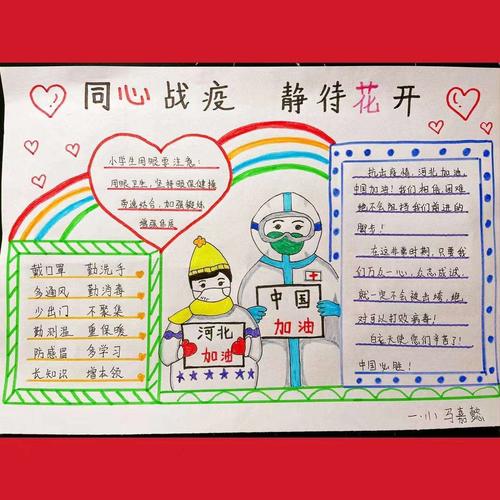 同心战疫 静待花开
小学生用眼要注意:
用眼卫生,坚持眼保健操
劳逸结合,加强锻炼
增强体质
戴口罩 勤洗手
多通风 勤消毒
少出门 不聚集
勤测温 重保暖
防感冒 多学习
长知识 增本领
河北
加油
中国
加油
抗击疫情,河北加油,
中国加油!我们相信,困难
绝不会阻挡我们前进的
脚步!
在这非常时期,只要我
们万众一心,众志成诚,
就一定不会被击垮,绝
对可以打败病毒!
白衣天使,您们辛苦了!
中国必胜!
一·小 马嘉懿